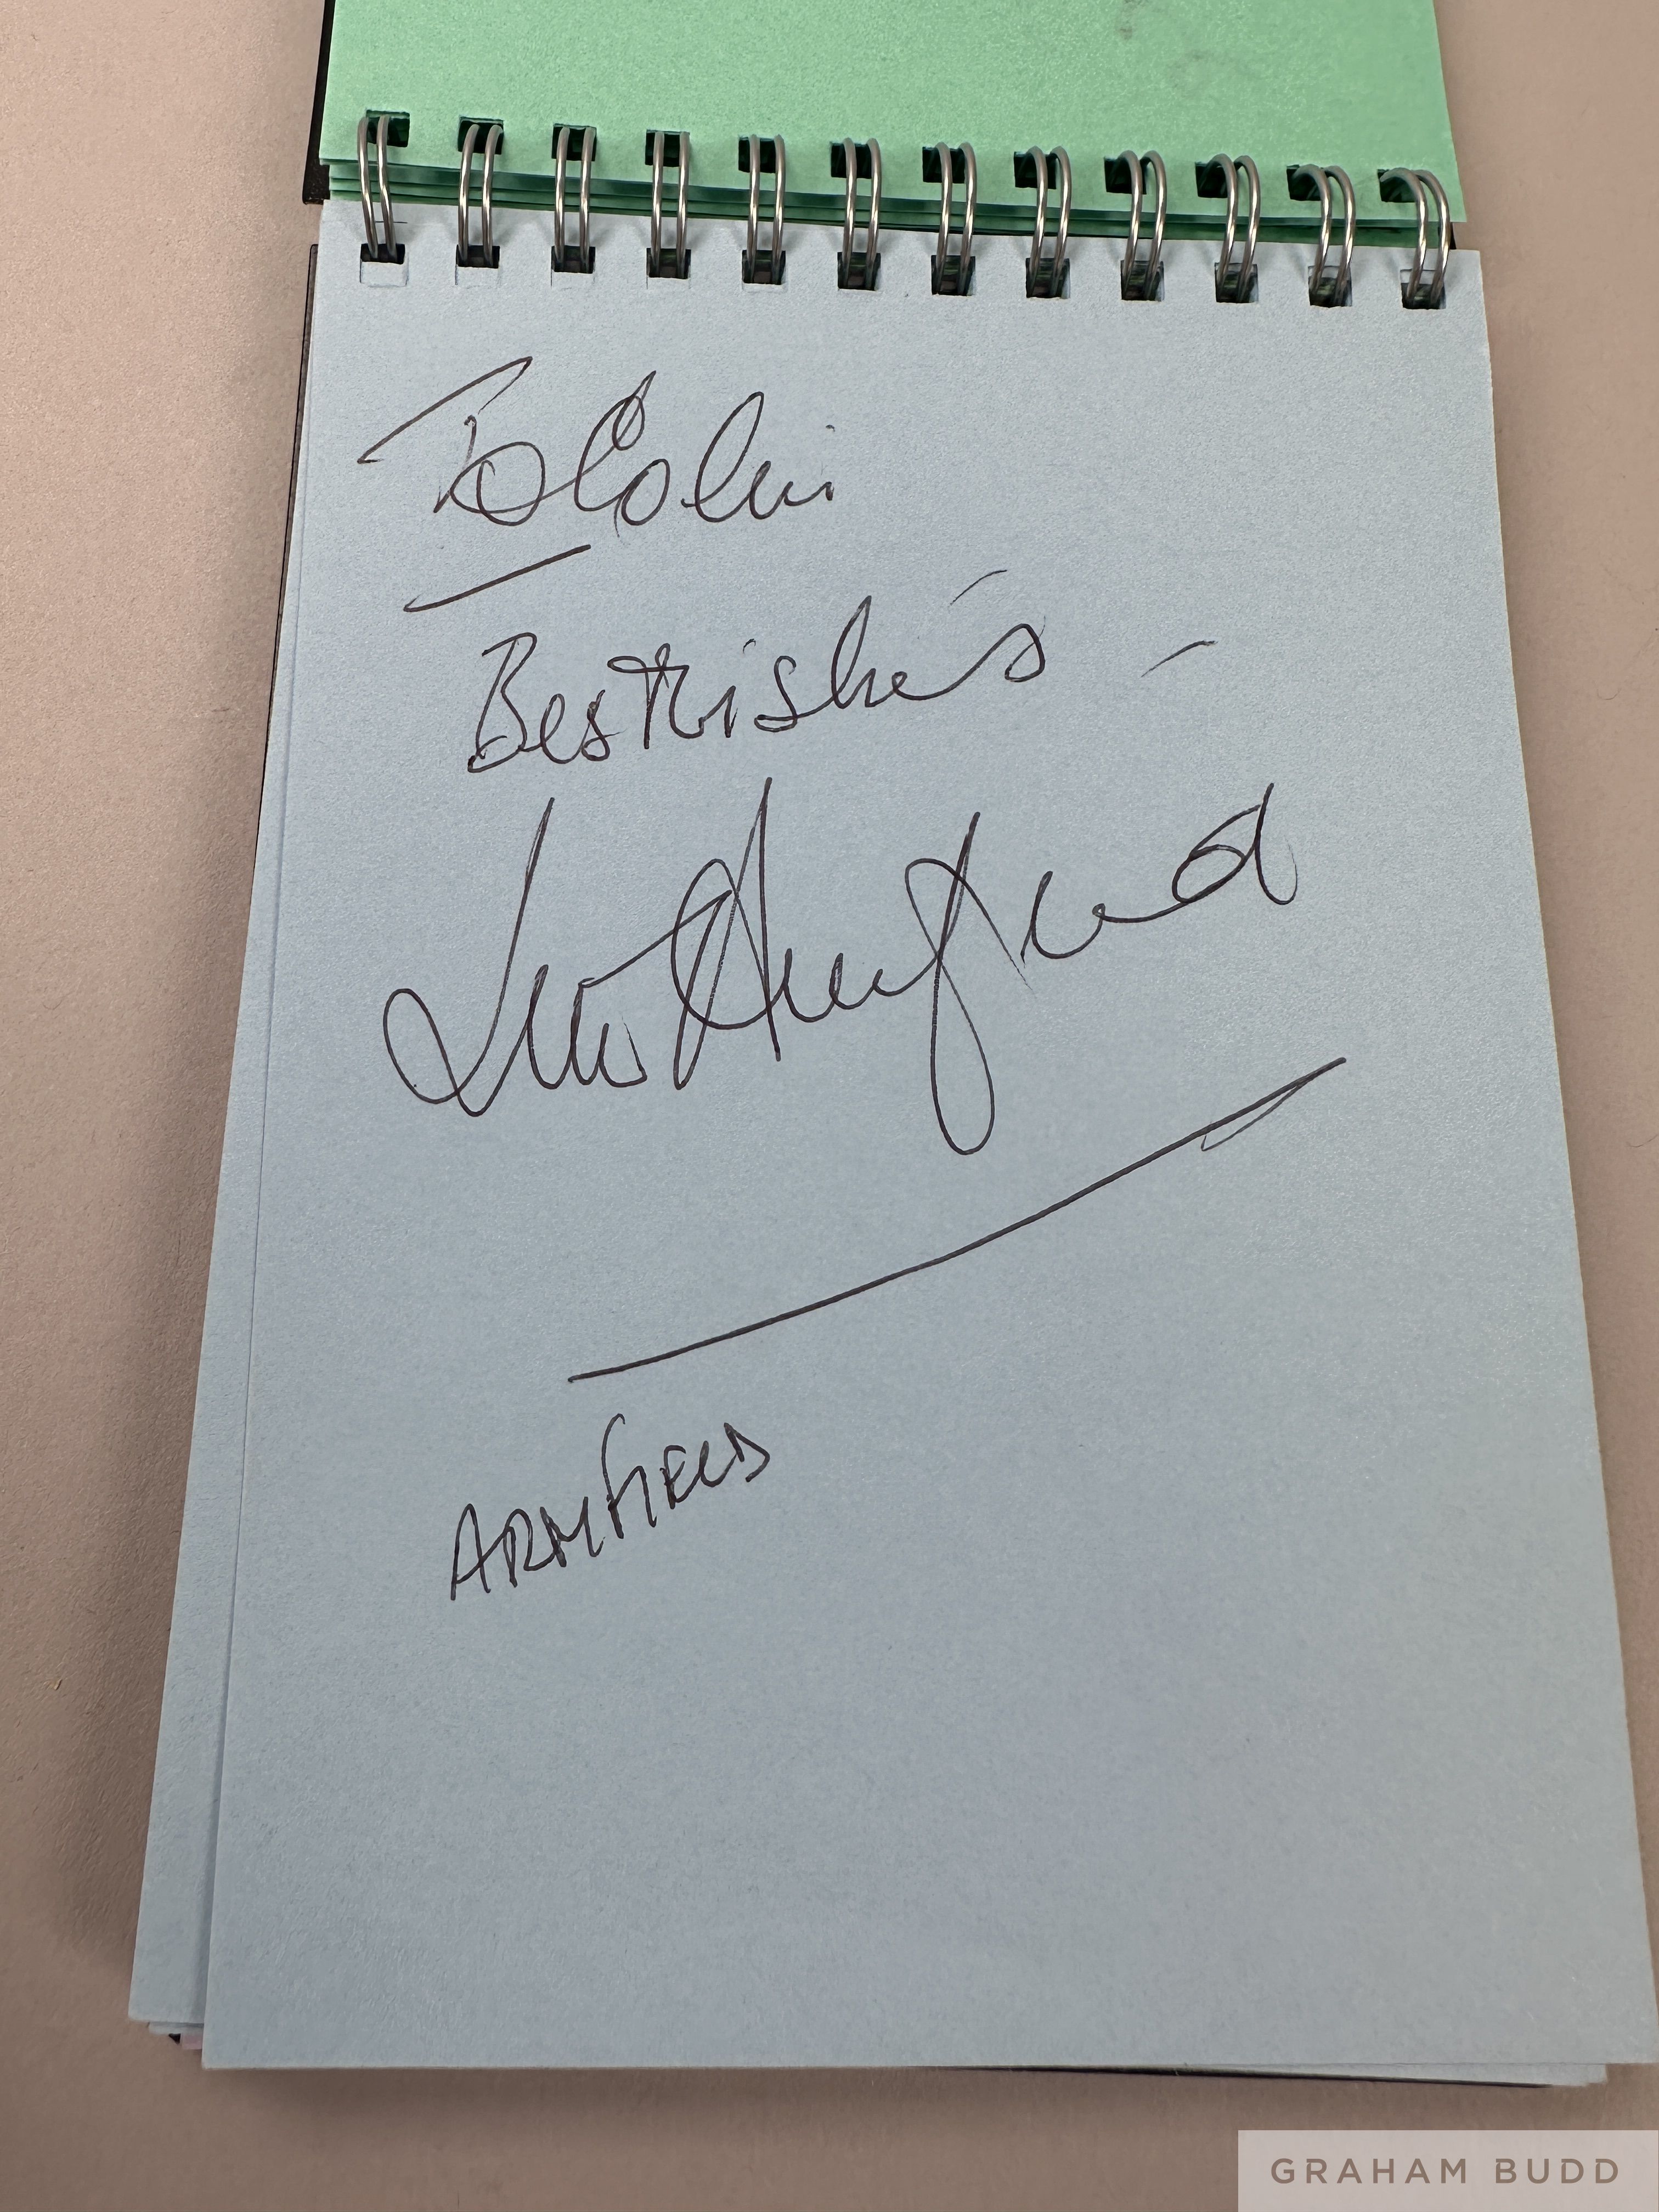 To Colin
Best Wishes
Jimmy Armfield
ARMFIELD
GRAHAM BUDD